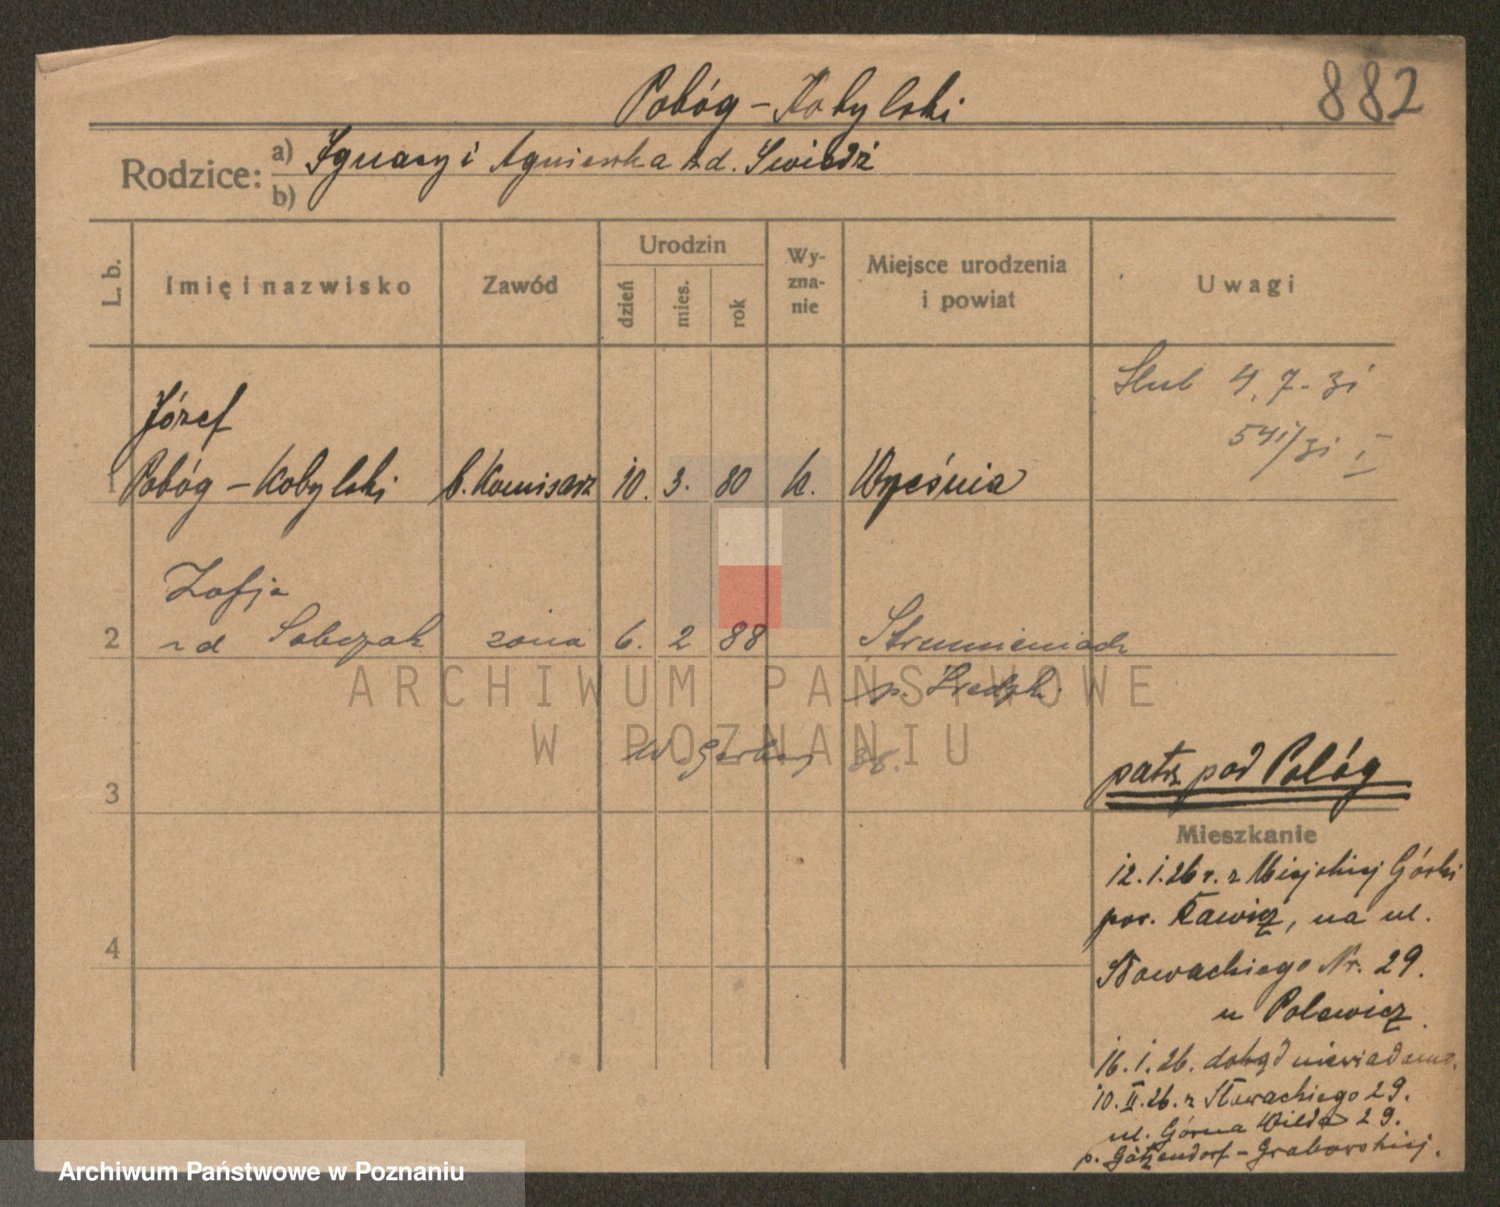 882
Pobóg-Kobylski
Rodzice: a) Ignacy i Agnieszka z d. Swiedź
b)
L. b. Imię i nazwisko Zawód Urodzin dzień mies. rok Wy-zna-nie Miejsce urodzenia i powiat Uwagi
Slub 4.7-31
541/31 I
Józef
1 Pobóg-Kobylski b. Komisarz 10. 3. 80 k. Września
Zofja
2 z d Sobczak żona 6. 2 88
p. Średzki
W Garbary 36.
ARCHIWUM PAŃSTWOWE
W POZNANIU
patrz pod Pobóg
3
Mieszkanie
12.1.26 r. z Miejskiej Górki
pow. Rawicz, na ul.
4
Słowackiego Nr. 29.
u Polewicz.
16.1.26. dokąd niewiadomo.
10.II.26. z Słowackiego 29.
ul. Górna Wilda 29.
p. Götzendorf-Grabowskiej.
Archiwum Państwowe w Poznaniu